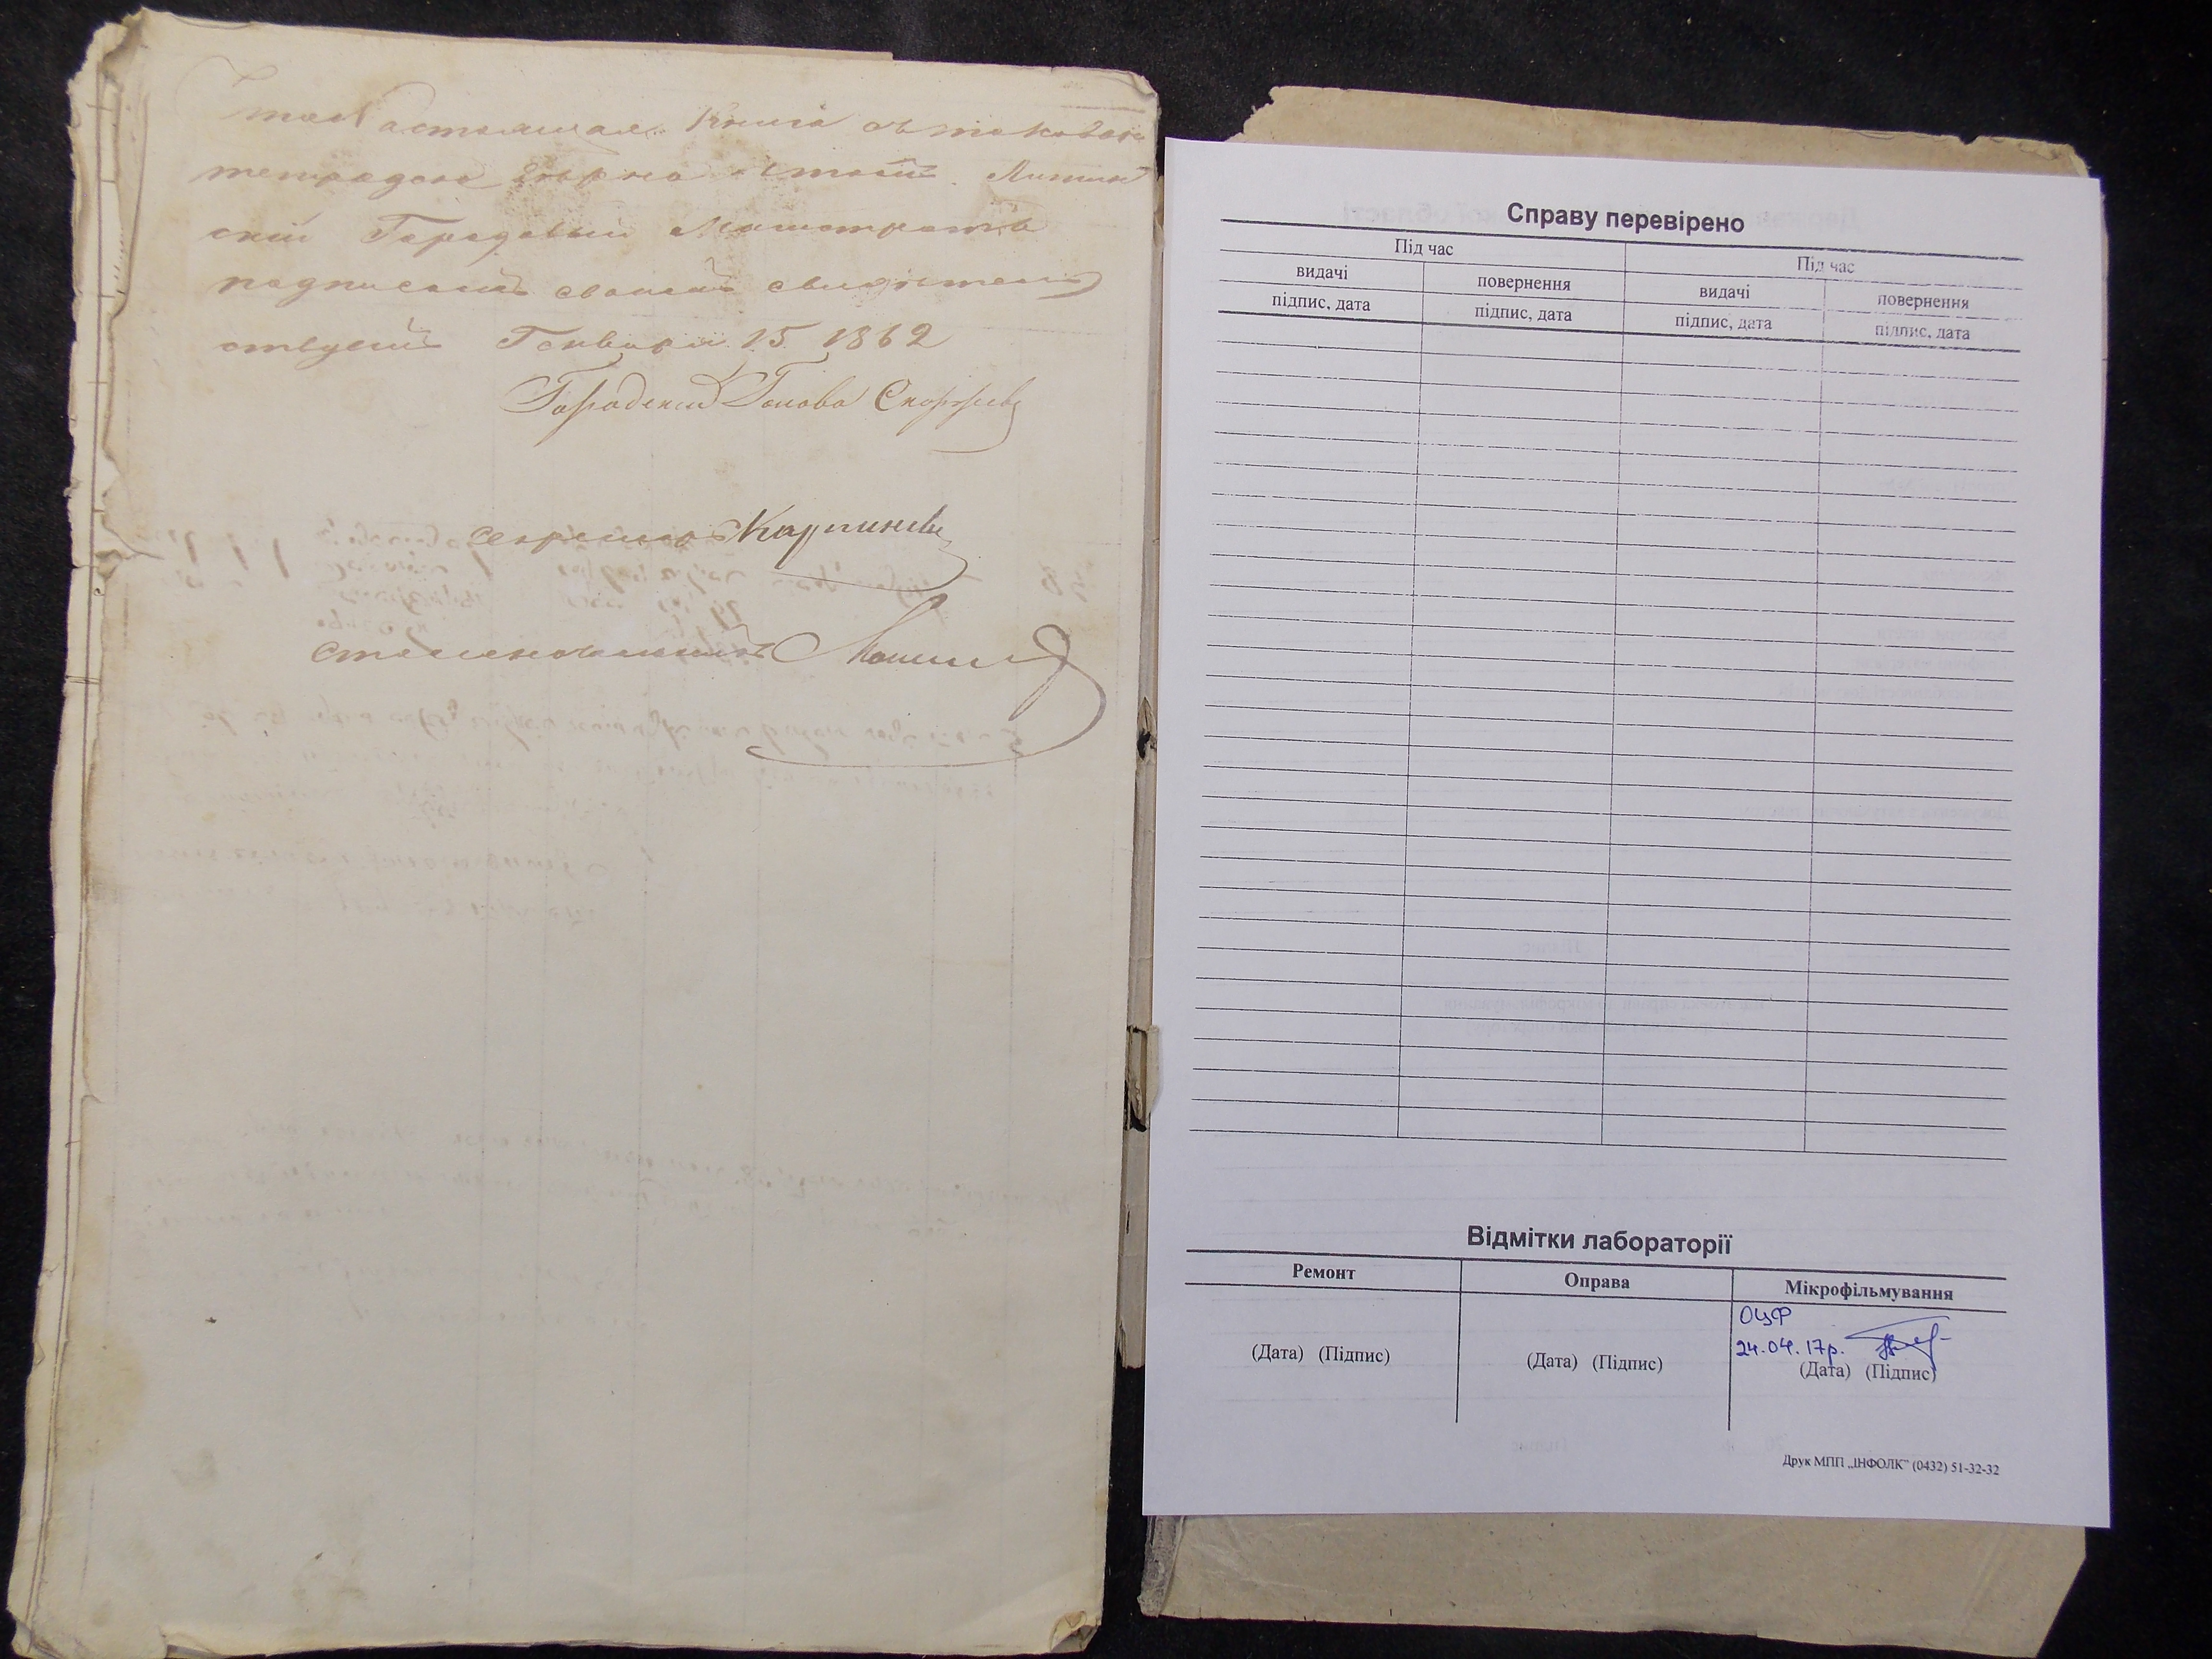 что Настоящая Книга съ таковою
тетрадью верна въ томъ Литин
скій Городовый Магистратъ
подписомъ своимъ свидетель
ствуетъ Генваря 15 1862
Городский Голова
секретарь
столоначальникъ
Справу перевірено
Під час Під час
видачі повернення видачі повернення
підпис, дата підпис, дата підпис, дата підпис, дата
Відмітки лабораторії
Ремонт Оправа Мікрофільмування
ОЦФ
24.04.17р.
(Дата) (Підпис) (Дата) (Підпис) (Дата) (Підпис)
Друк МПП „ІНФОЛК" (0432) 51-32-32